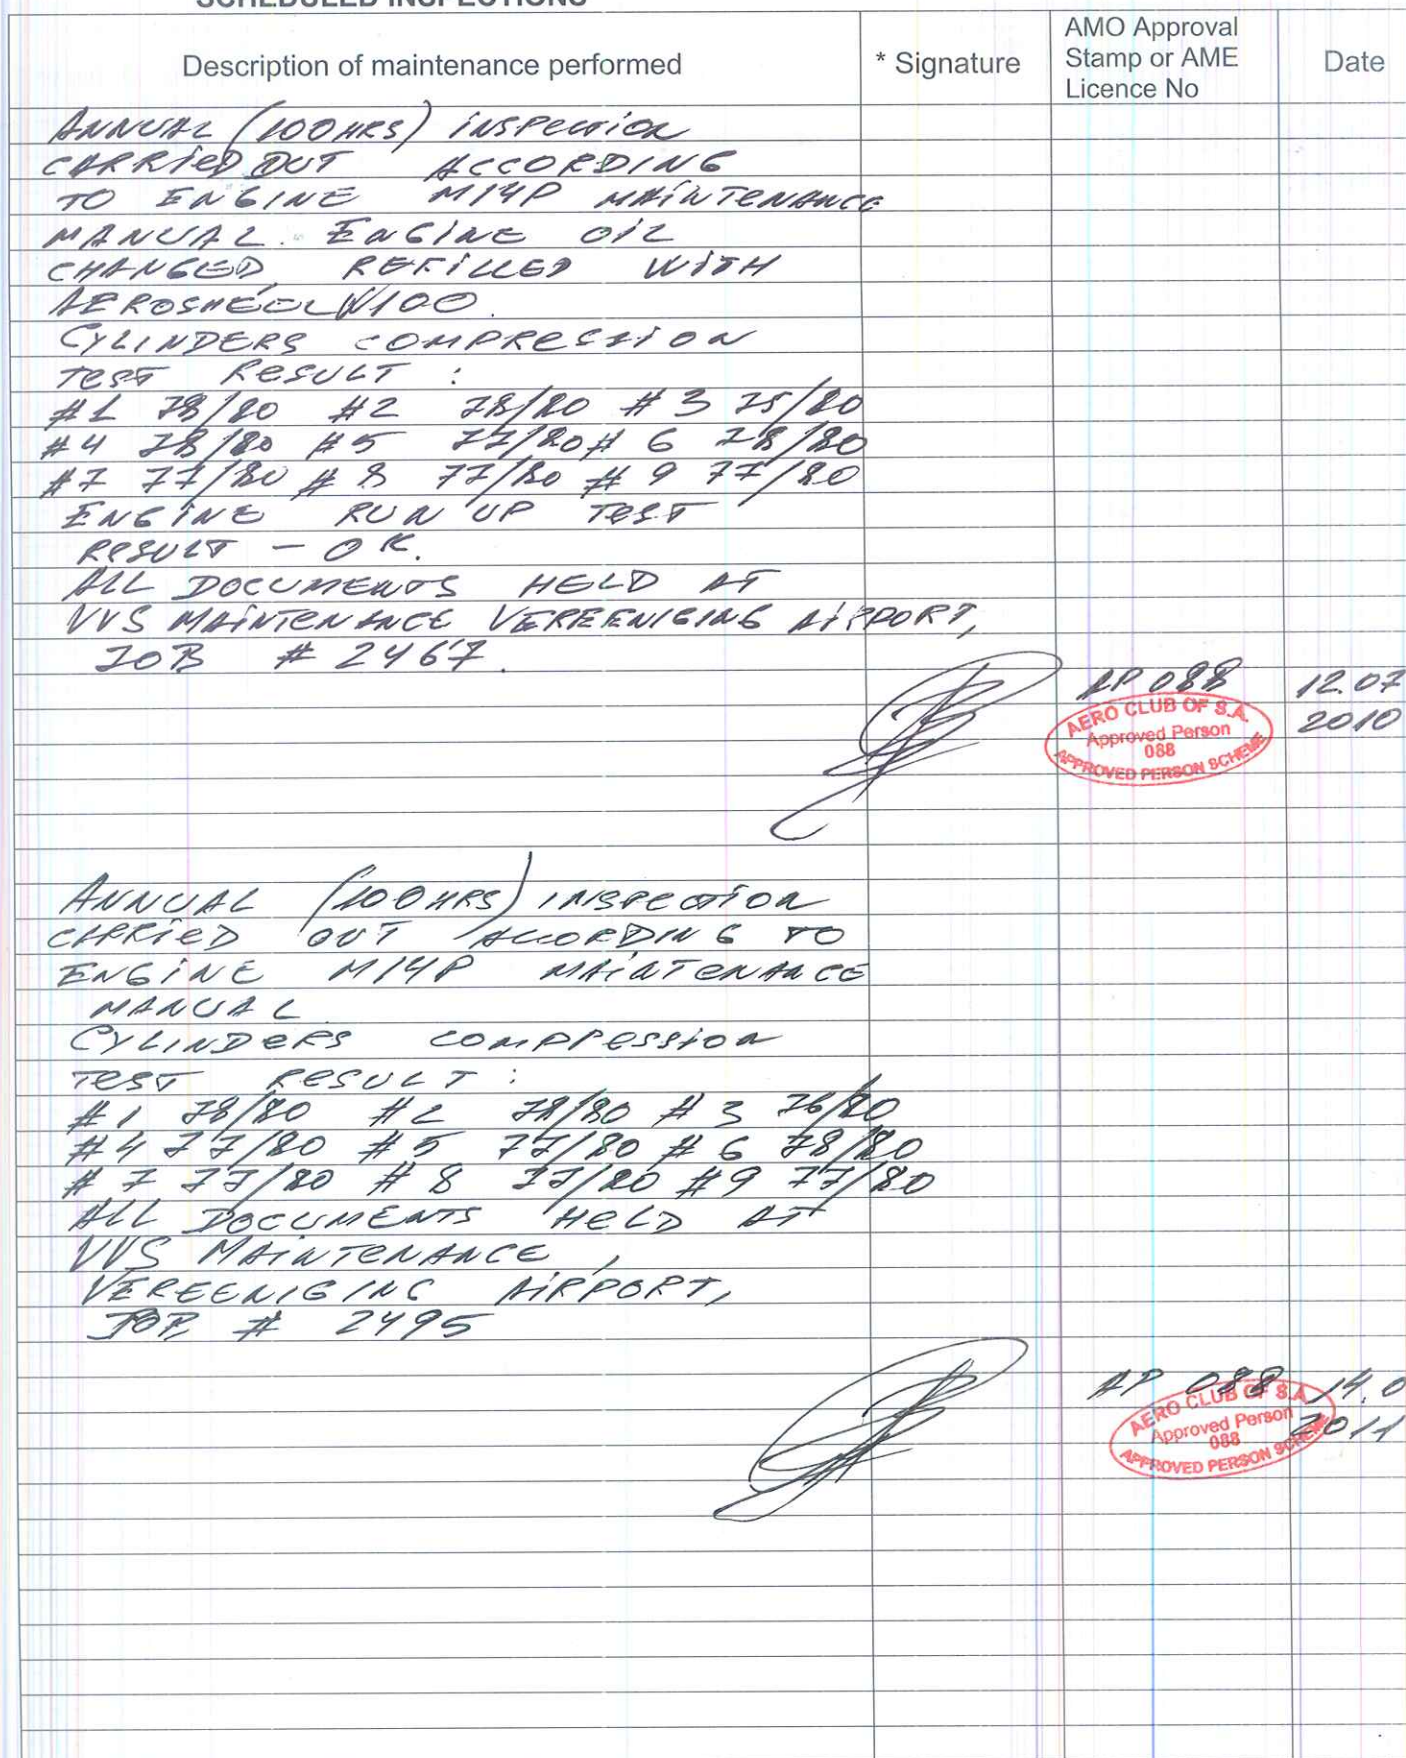 SCHEDULED INSPECTIONS
Description of maintenance performed
* Signature
AMO Approval
Stamp or AME
Licence No
Date
ANNUAL (100HRS) INSPECTION
CARRIED OUT ACCORDING
TO ENGINE M14P MAINTENANCE
MANUAL. ENGINE OIL
CHANGED, REFILLED WITH
AEROSHELL W100.
CYLINDERS COMPRESSION
TEST RESULT :
#1 78/80 #2 78/80 #3 75/80
#4 78/80 #5 77/80 #6 78/80
#7 77/80 #8 77/80 #9 77/80
ENGINE RUN UP TEST
RESULT - OK.
ALL DOCUMENTS HELD AT
VVS MAINTENANCE VEREENIGING AIRPORT,
JOB # 2467.
AP 088 12.07
2010
AERO CLUB OF S.A.
Approved Person
088
APPROVED PERSON SCHEME
ANNUAL (100HRS) INSPECTION
CARRIED OUT ACCORDING TO
ENGINE M14P MAINTENANCE
MANUAL
CYLINDERS COMPRESSION
TEST RESULT :
#1 78/80 #2 78/80 #3 76/80
#4 77/80 #5 77/80 #6 78/80
#7 77/80 #8 77/80 #9 77/80
ALL DOCUMENTS HELD AT
VVS MAINTENANCE,
VEREENIGING AIRPORT,
JOB # 2495
AP 088 14.0
2011
AERO CLUB OF S.A.
Approved Person
088
APPROVED PERSON SCHEME